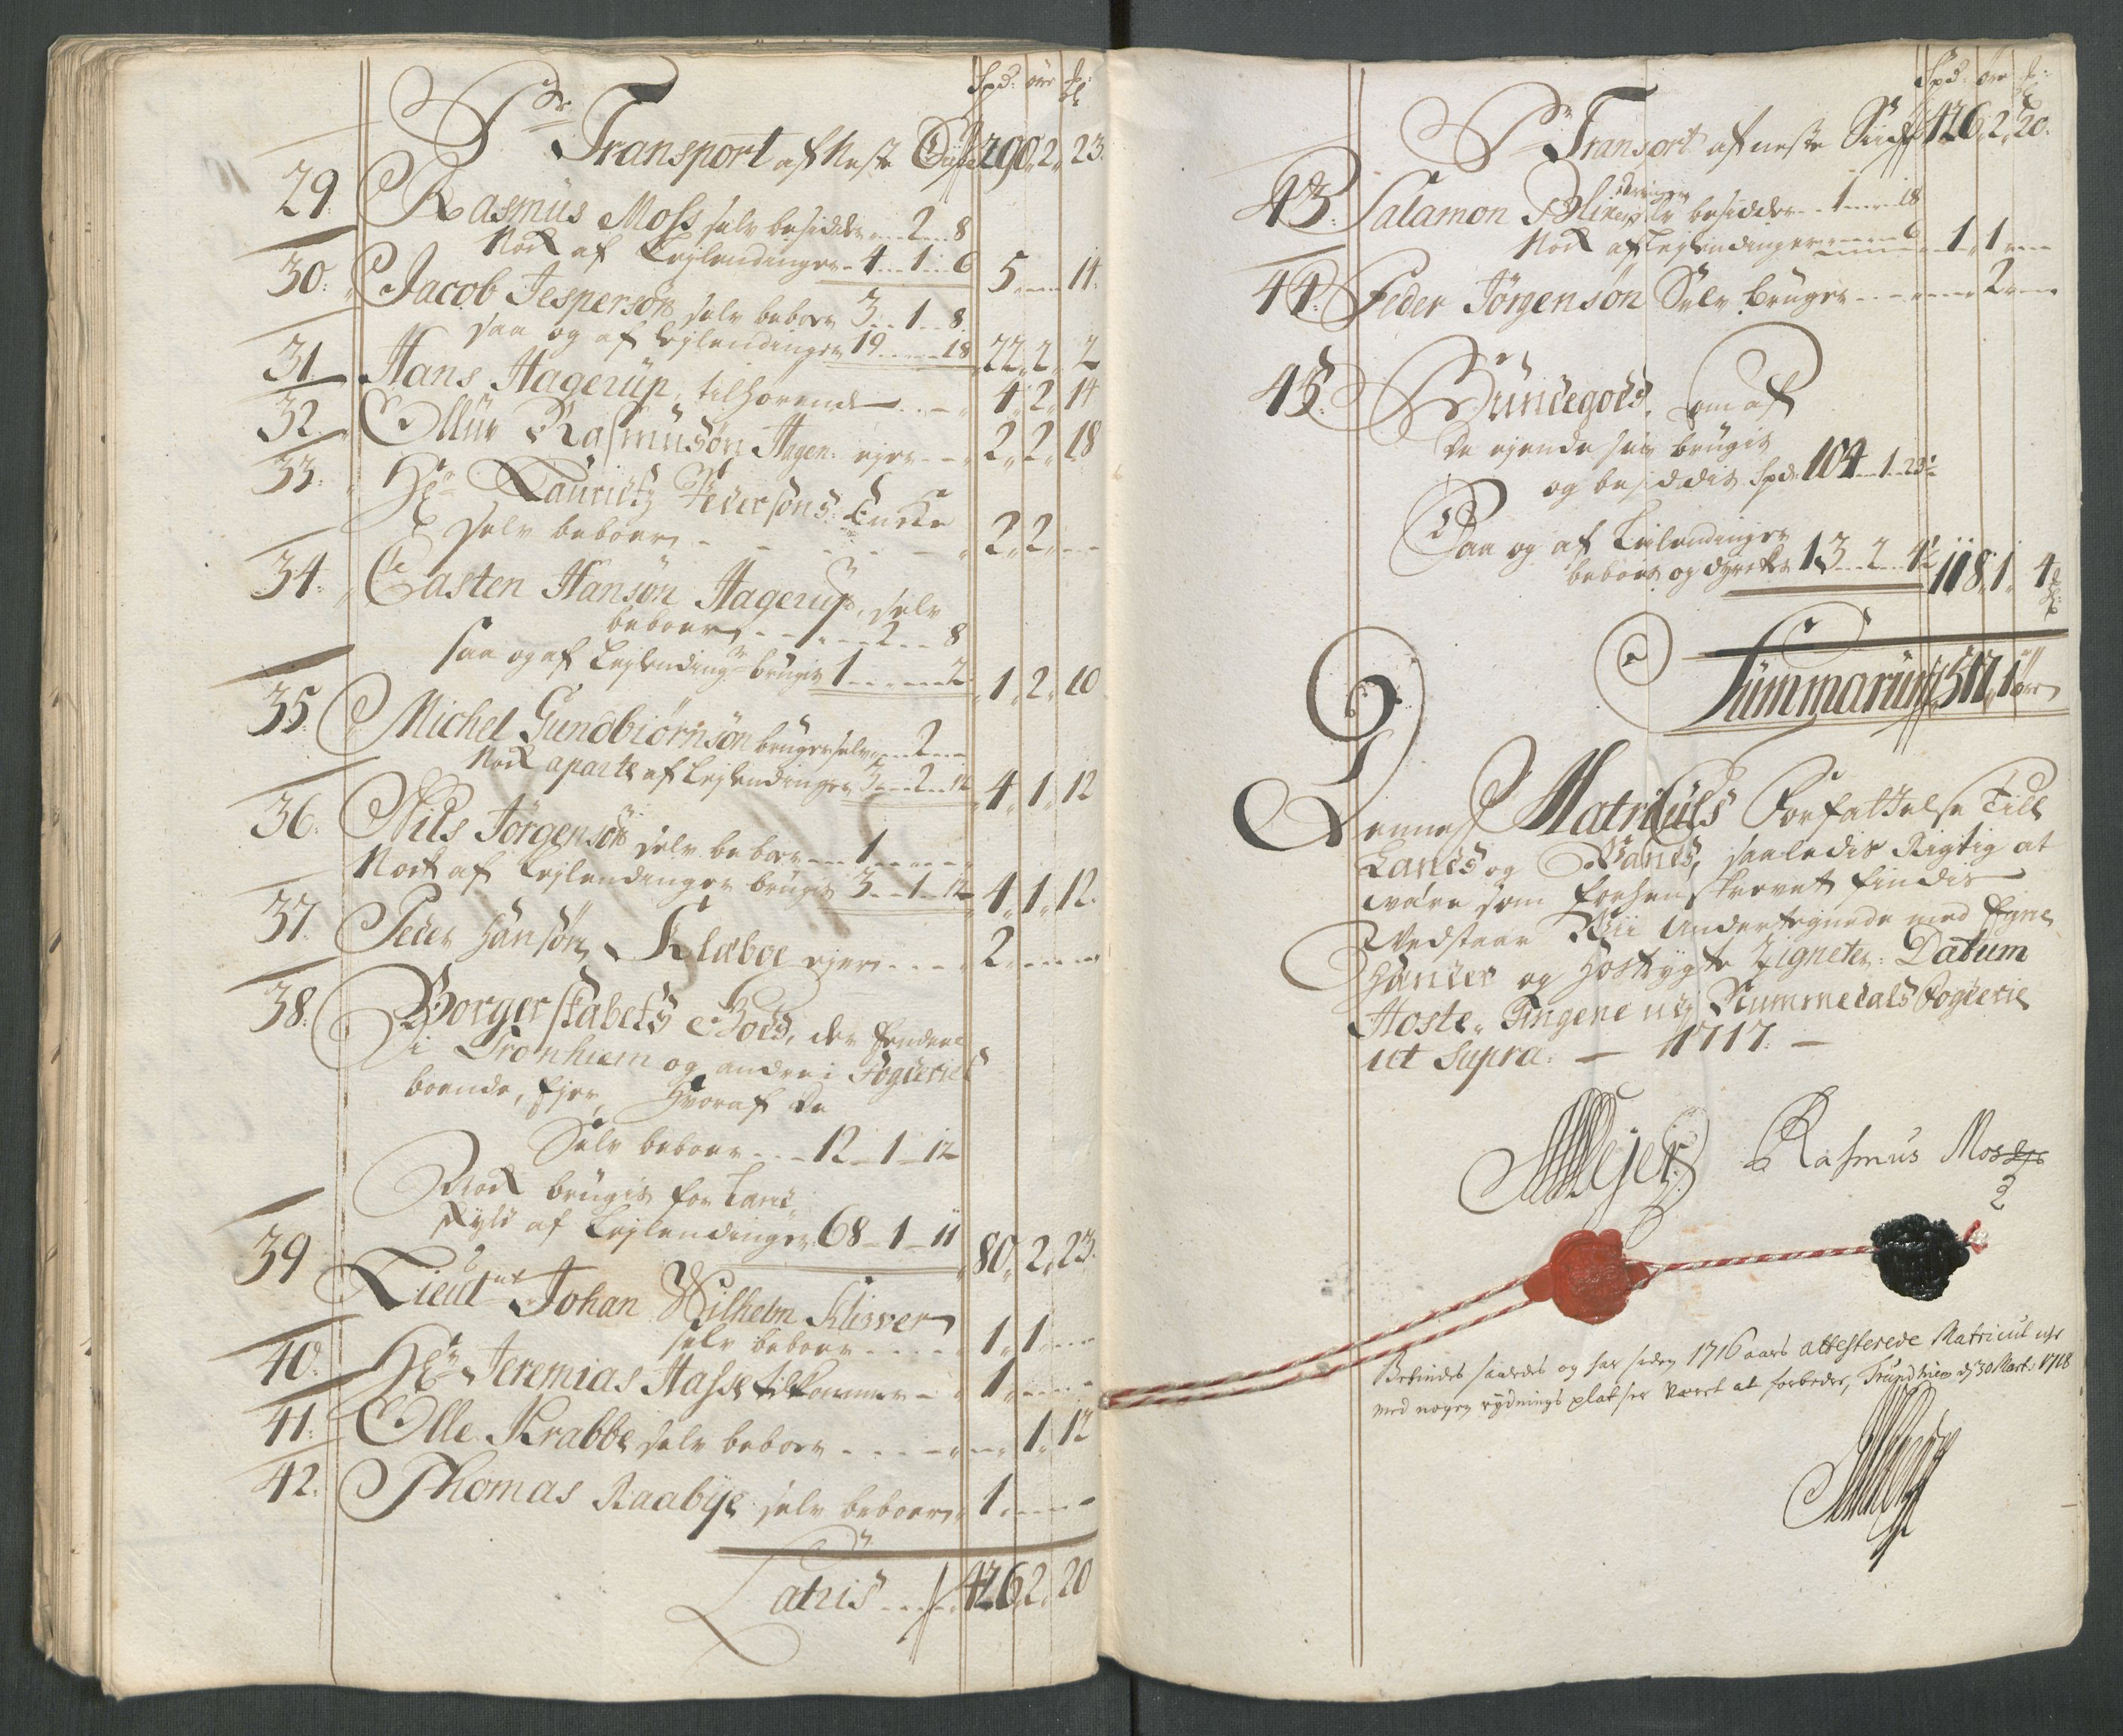 Spd: øre
Pr Transport af Neste Sÿde 290 2 23.
29. Rasmus Moss selv besidder 2 8
Nock af Lejlendinger 4 1 6 5 14.
30. Jacob Jespersøn selv beboer 3 1 8
saa og af lejlendinger 19 18 22 2 2
31. Hans Hagerup, tilhørende 4 2 14
32. Ellur Rasmusøn Hagen ejer 2 2 18
33. Hr Lauritz Pedersøns Encke
selv beboer 2 2
34. Casten Hansøn Hagerup, selv
beboer 2 8
saa og af Lejlending brugis 1 2 1 2 10
35. Michel Gundbiørnsøn bruger selv 2
Nock aparte af Lejlendinger 3 2 12 4 1 12
36. Nils Jørgensøn selv beboer 1
Nock af Lejlendinger brugis 3 1 12 4 1 12.
37. Peder Hansøn Klæboe ejer 2
38. Borgerskabets Gods, der
i Tronhiem og andre i Fogderiet
boende, Ejer, hvoraf de
Selv beboer 12 1 12
Nock brugis for Land
skyld af Lejlendinger 68 1 11 80 2 23.
39 Lieutnt Johan Wilhelm Klüver
selv beboer 1 1
40. Hr Jeremias Hasse tilkommer 1
41. Olle Krabbe selv beboer 1 12
42. Thomas Raabye selv beboer 1
Latris 426 2 20
Spd: øre
Pr Transort af neste Sude 426 2 20.
43. Salamon besidder 1 18
Nock af Lejlendinger 6 1 1
44. Peder Jørgensøn Selv bruger 2
45. Bundegods, som af
De ejende selv brugis
og besiddis Spd: 104 1 23½
Saa og af Lejlendinger
beboes og dyrckes 13 2 4½ 118 1 4
Summarum 547 1 øre
Denne Matriculs Forfattelse Till
Lands og Vands, saaledis Rigtig at
være som forhen skrevet findis
Vedstaar Vii Undertegnede med Egne
Hænder og hostrygte Zigneter. Datum
Høste Tingene udj Nummedals Fogderie
ut supra. — 1717. —
Rasmus Moss
Befindes saaledes og har siden 1716 aars attesterede Matricul icke
med nogen rydnings platser været at forbedre, Trundhiem d 30 Mart: 1718